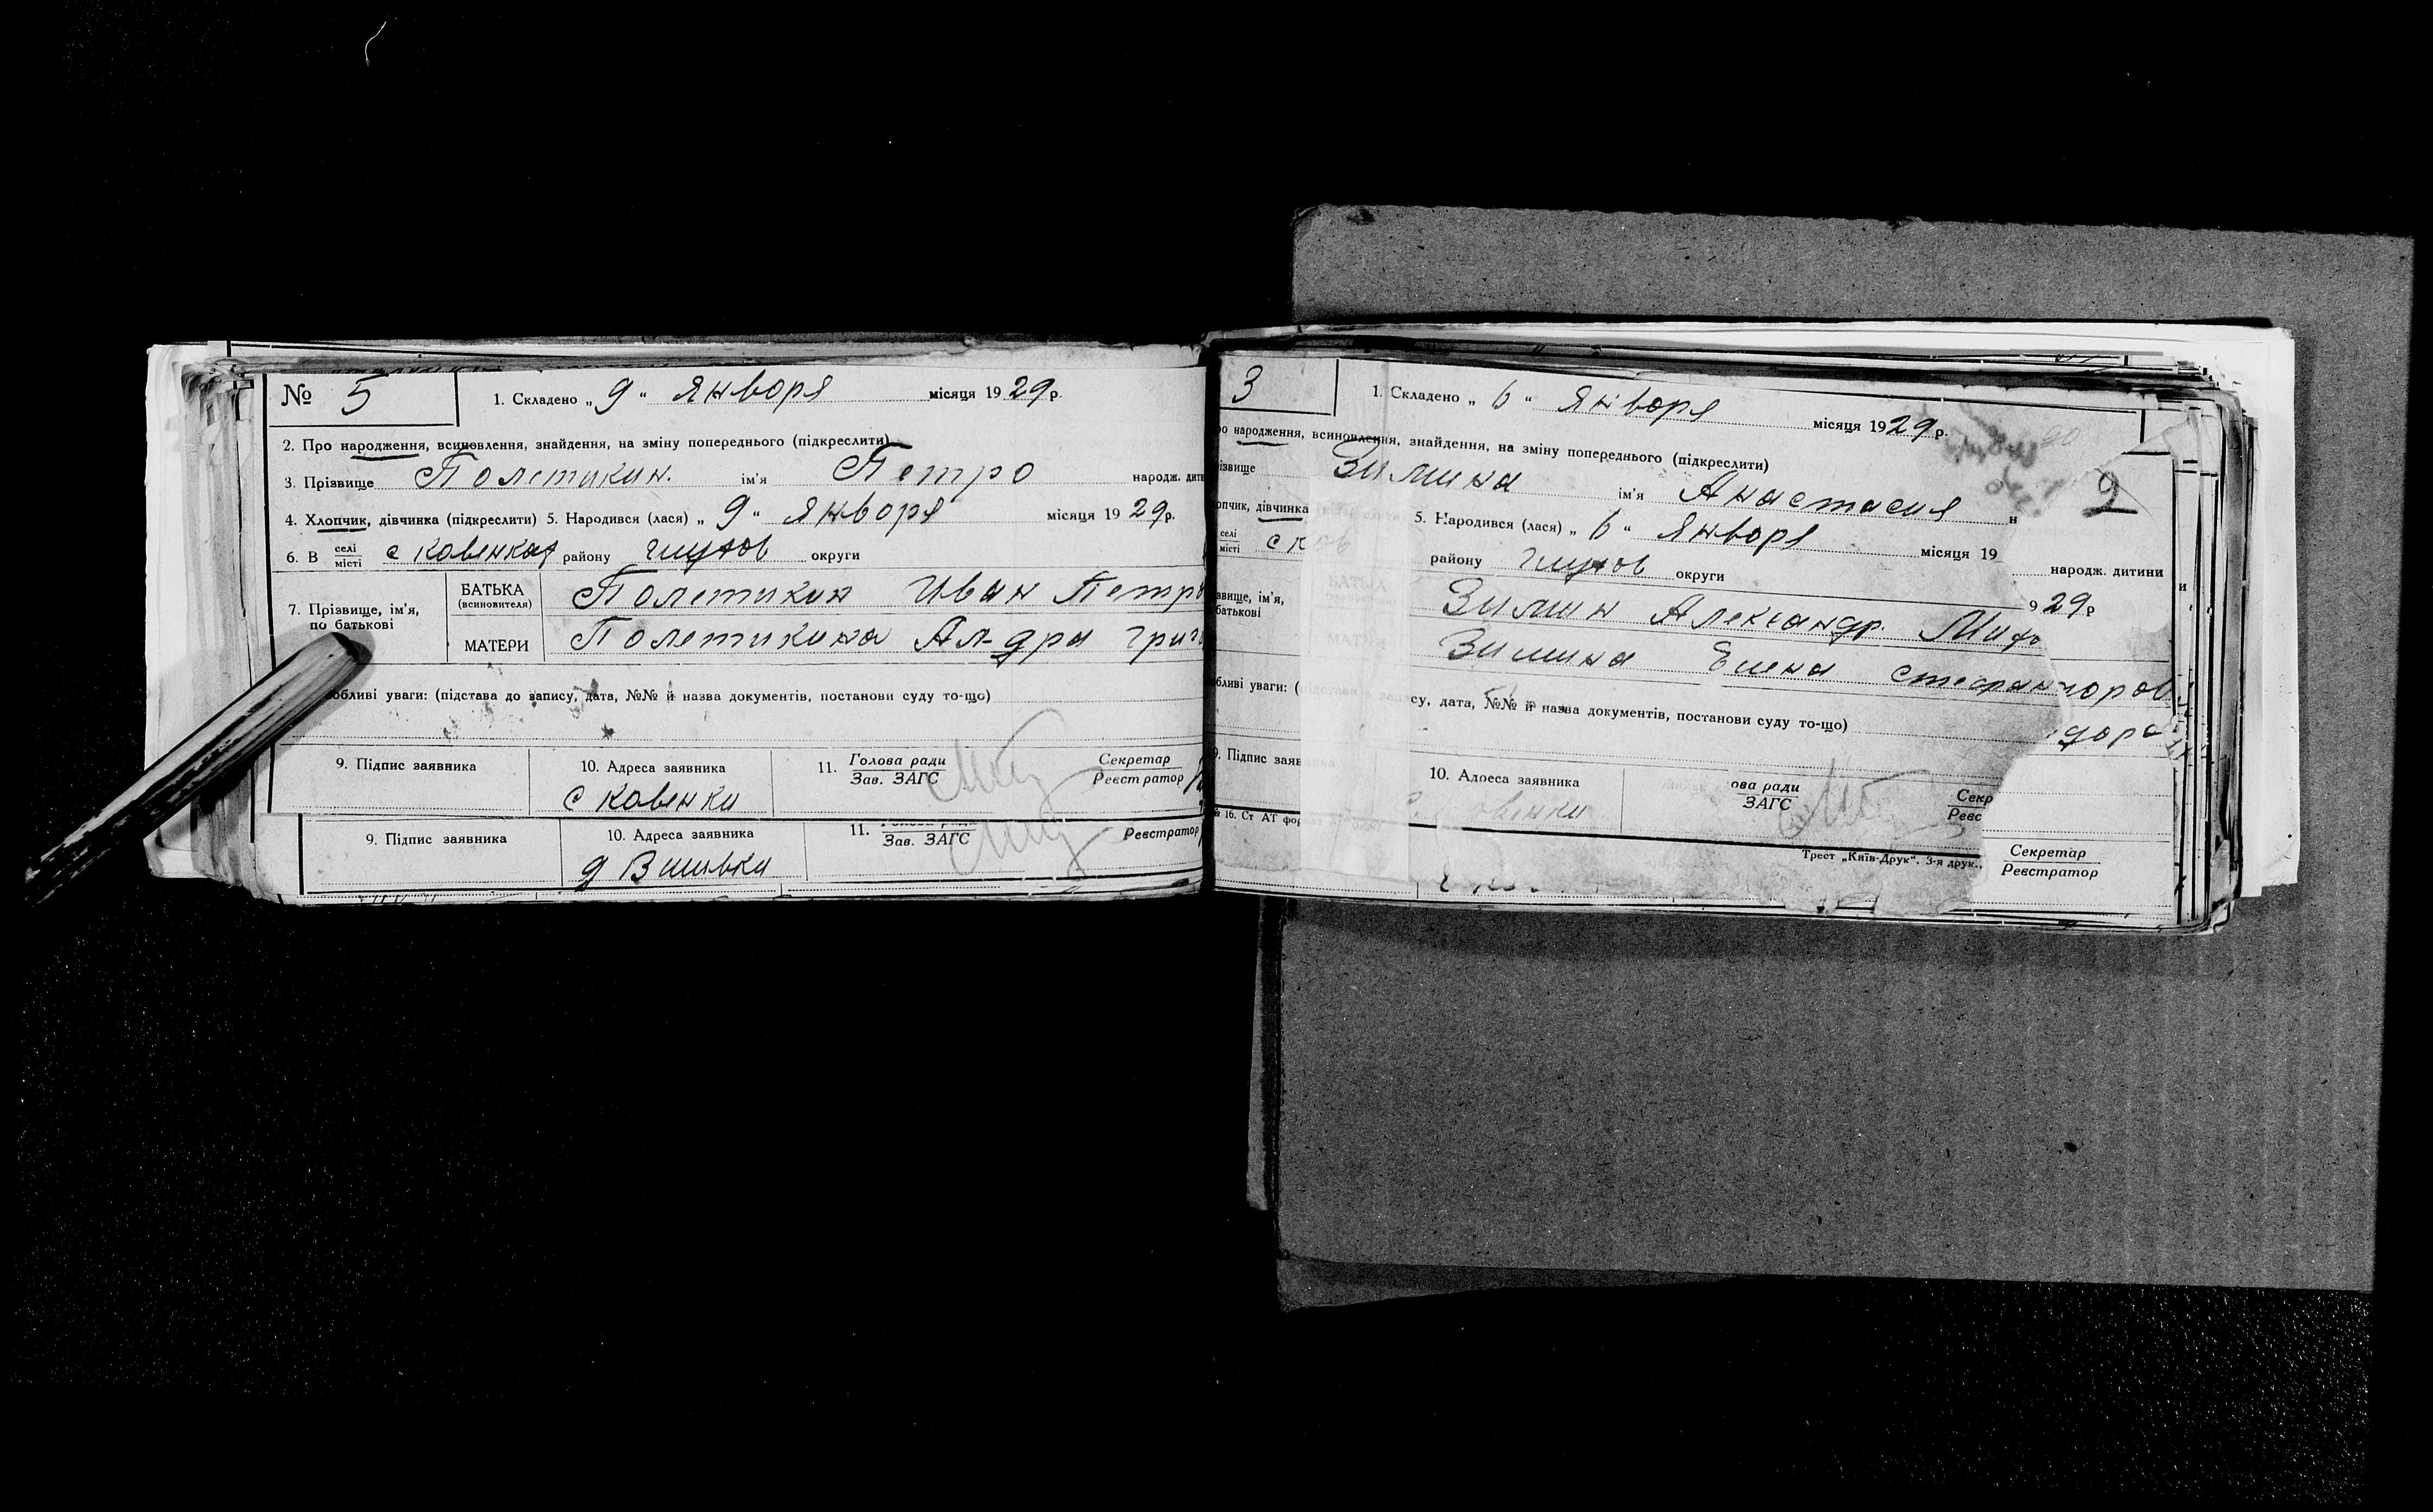 № 5
1. Складено „ 9 “ Января місяця 1929 р.
2. Про народження, всиновлення, знайдення, на зміну попереднього (підкреслити)
3. Прізвище Полетикин. ім'я Петро народж. дит
4. Хлопчик, дівчинка (підкреслити) 5. Народився (лася) „ 9 “ Января місяця 1929 р.
6. В селі місті с Ковенках району округи
7. Прізвище, ім'я, по батькові
БАТЬКА (всиновителя) Полетикин Иван Петр
МАТЕРИ Полетикина Ал-дра Григ
обливі уваги: (підстава до запису, дата, №№ й назва документів, постанови суду то-що)
9. Підпис заявника
10. Адреса заявника
с Ковенки
11. Голова ради Зав. ЗАГС
Секретар Реєстратор
9. Підпис заявника
10. Адреса заявника
11. Зав. ЗАГС
Реєстратор
3
1. Складено „ 6 “ Января місяця 1929 р.
ро народження, всиновлення, знайдення, на зміну попереднього (підкреслити)
2
різвище Зимина ім'я Анастасия н
опчик, дівчинка 5. Народився (лася) „ 6 “ Января місяця 19
селі місті с Ков району округи
народж. дитини
9 29 р
звище, ім'я, батькові
БАТЬКА Зимин Александр
МАТЕРИ Зимина Елена
обливі уваги: ( су, дата, №№ й назва документів, постанови суду то-що)
9. Підпис заяв
10. Адреса заявника
овенки
ова ради ЗАГС
Секр Реєс
№ 16. Ст АТ фор
Трест „Київ-Друк“. 3-я друк.,
Секретар
Реєстратор